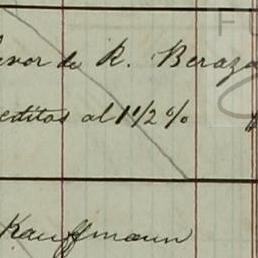 evor de R. Beraza
editos al 1 1/2 %
Kauffmann